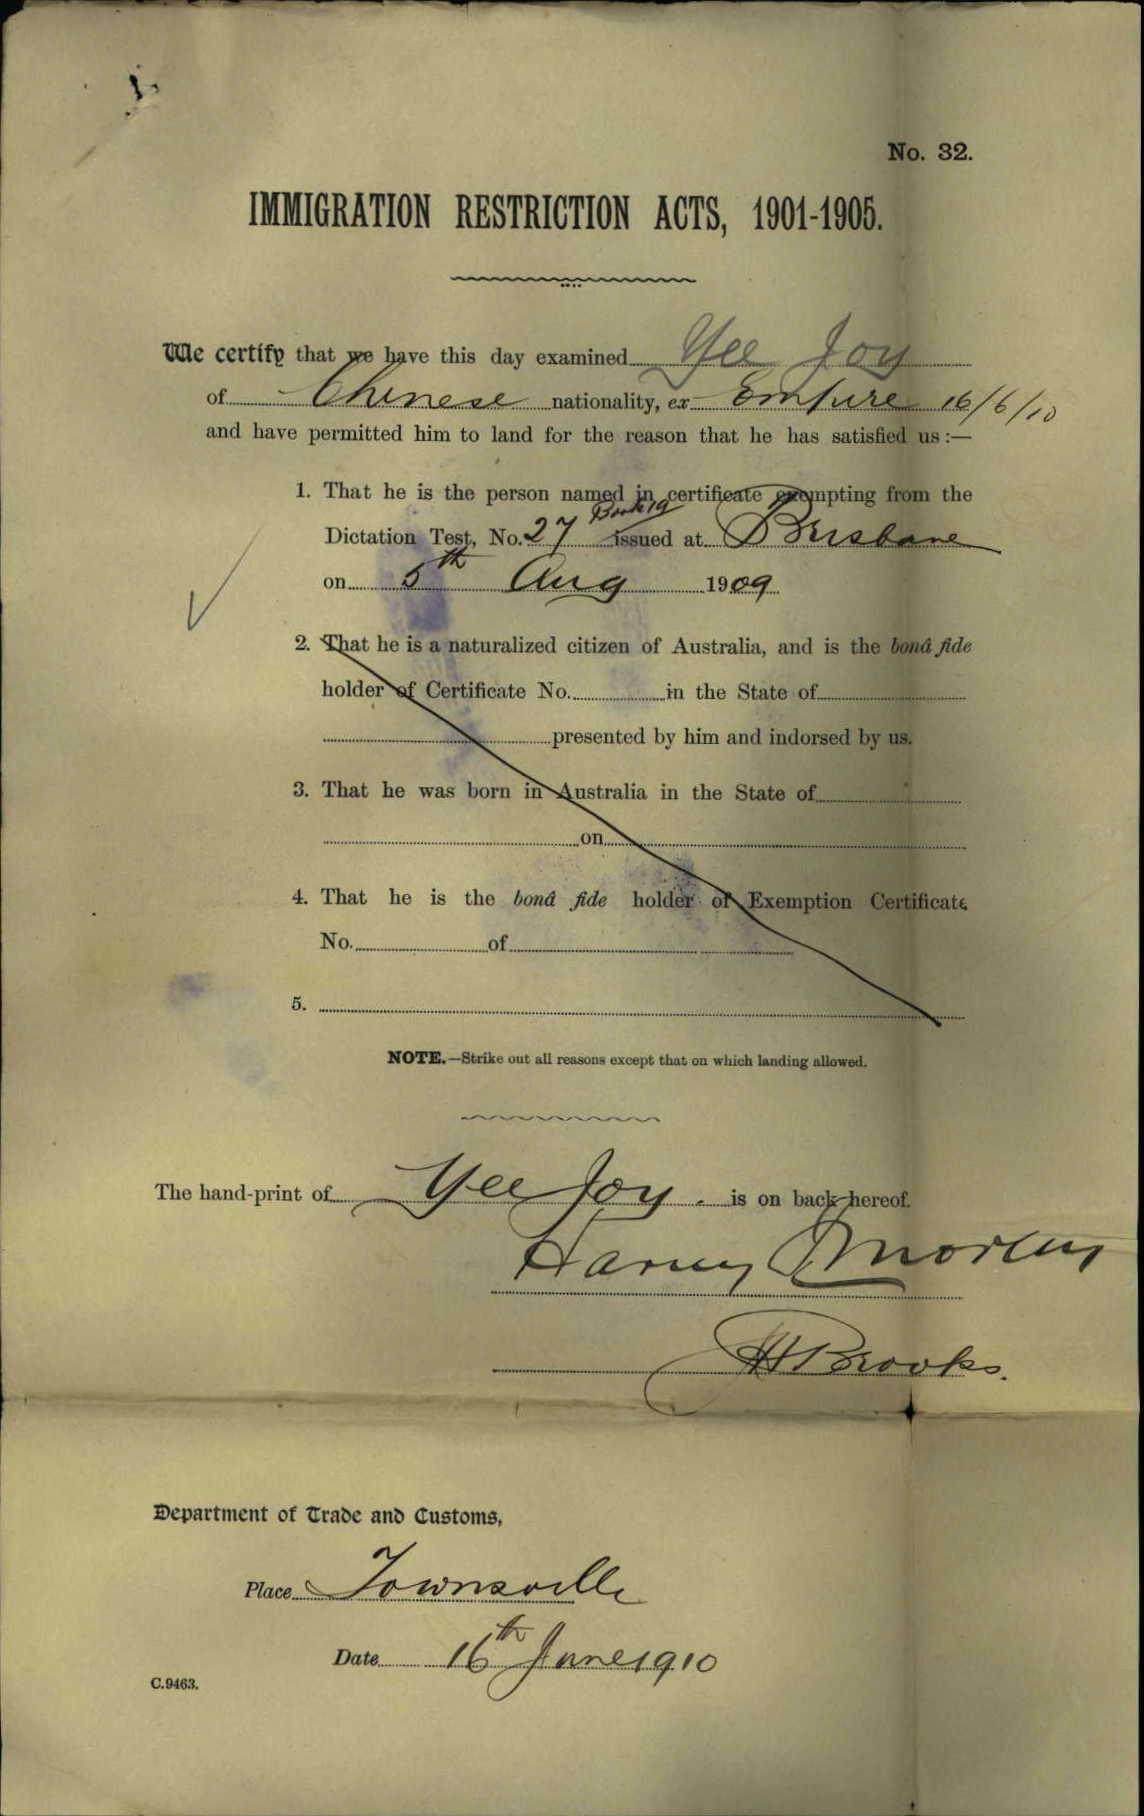 No. 32.
IMMIGRATION RESTRICTION ACTS, 1901-1905.
We certify that we have this day examined Yee Joy
of Chinese nationality, ex Empire 16/6/10
and have permitted him to land for the reason that he has satisfied us :—
1. That he is the person named in certificate exempting from the
Book 19
Dictation Test, No. 27 issued at Brisbane
on 5th Aug 1909
2. That he is a naturalized citizen of Australia, and is the bonâ fide
holder of Certificate No. in the State of
presented by him and indorsed by us.
3. That he was born in Australia in the State of
on
4. That he is the bonâ fide holder of Exemption Certificate
No. of
5.
NOTE.—Strike out all reasons except that on which landing allowed.
The hand-print of Yee Joy. is on back hereof.
Harvey Morley
Brooks.
Department of Trade and Customs,
Place Townsville
Date 16th June 1910
C.9463.